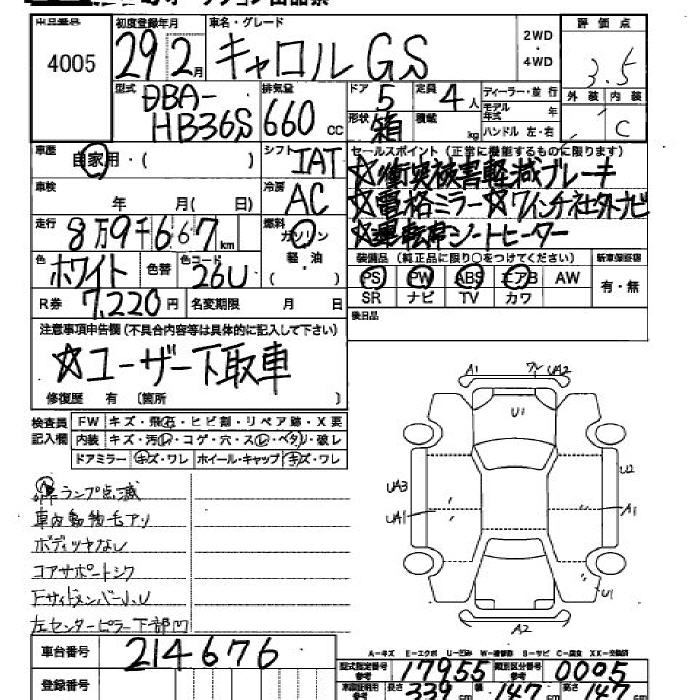 4005
初度登録年月
29年2月
車名・グレード
キャロル GS
2WD
・
4WD
評価点
3.5
外装 内装
C
型式
DBA-
HB36S
排気量
660 cc
ドア 5
定員 4人
形状 箱
積載 kg
ディーラー・並行
モデル年式 年
ハンドル 左・右
車歴
自家用・( )
シフト IAT
セールスポイント (正常に機能するものに限ります)
☆衝突被害軽減ブレーキ
☆電格ミラー☆7インチ社外ナビ
☆運転席シートヒーター
車検
年 月( 日)
冷房 AC
走行
8万9千667km
燃料
ガソリン
軽・油
( )
色 ホワイト
色替
色コード 26U
装備品 (純正品に限り○をつけてください)
PS PW ABS エアB AW
SR ナビ TV カワ
新車保証書
有・無
R券 7,220円
名変期限 月 日
後日品
注意事項申告欄(不具合内容等は具体的に記入して下さい)
☆ユーザー下取車
修復歴 有 〔箇所 〕
検査員
記入欄
FW キズ・飛石・ヒビ割・リペア跡・X要
内装 キズ・汚レ・コゲ・穴・スレ・ベタリ・破レ
ドアミラー キズ・ワレ ホイール・キャップ キズ・ワレ
ランプ点滅
車内動物毛アリ
ボディツヤなし
コアサポートシワ
FサイドメンバーU.U
左センターピラー下部凹
A1
UA2
U1
UA3
UA1
U2
A1
U1
A2
車台番号
214676
登録番号
A-キズ E-エクボ U-凹み W-補修跡 S-サビ C-腐食 XX-交換済
型式指定番号
参考
17955
類別区分番号
参考
0005
長さ 339 cm
幅 147 cm
高さ